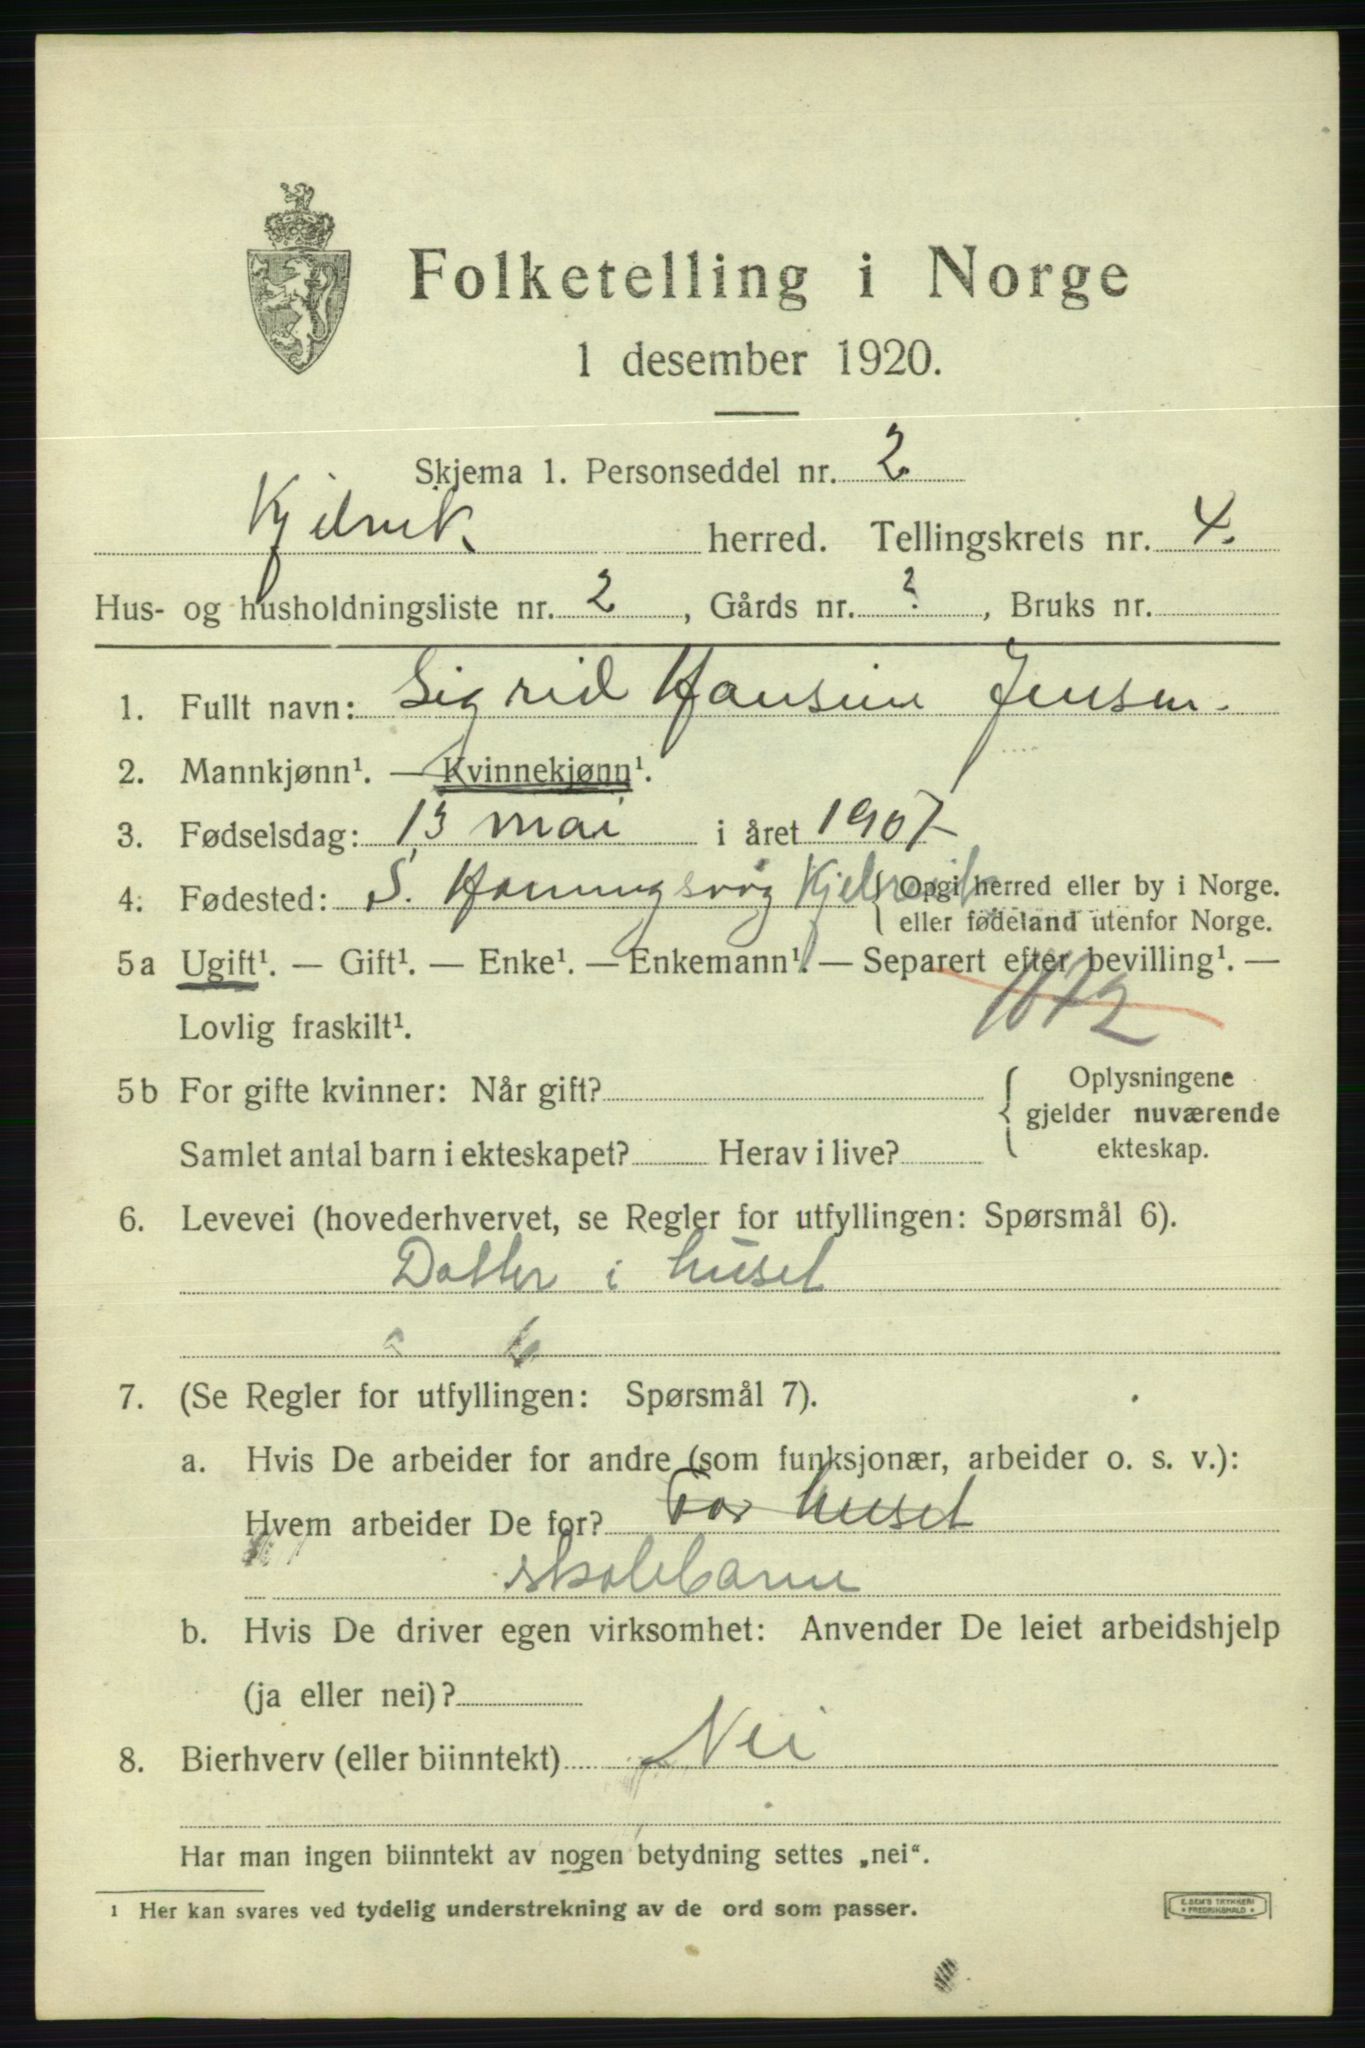 Folketelling i Norge
1 desember 1920.
Skjema 1. Personseddel nr. 2
Kjelvik herred. Tellingskrets nr. 4.
Hus- og husholdningsliste nr. 2, Gårds nr. ?, Bruks nr.
1. Fullt navn: Sigrid Hansine Jensen.
2. Mannkjønn¹. — Kvinnekjønn¹.
3. Fødselsdag: 13 mai i året 1907
4. Fødested: S. Honningsvåg Kjelvik { Opgi herred eller by i Norge.
eller fødeland utenfor Norge.
5a Ugift¹. — Gift¹. — Enke¹. — Enkemann¹. — Separert efter bevilling¹. —
1072
Lovlig fraskilt¹.
5b For gifte kvinner: Når gift? { Oplysningene
gjelder nuværende
Samlet antal barn i ekteskapet? Herav i live? ekteskap.
6. Levevei (hovederhvervet, se Regler for utfyllingen: Spørsmål 6).
Datter i huset
6
7. (Se Regler for utfyllingen: Spørsmål 7).
a. Hvis De arbeider for andre (som funksjonær, arbeider o. s. v.):
Hvem arbeider De for? For huset
skolebarn
b. Hvis De driver egen virksomhet: Anvender De leiet arbeidshjelp
(ja eller nei)?
8. Bierhverv (eller biinntekt) Nei
Har man ingen biinntekt av nogen betydning settes „nei“.
1 Her kan svares ved tydelig understrekning av de ord som passer.
E. SEM'S TRYKKERI
* FREDRIKSHALD *